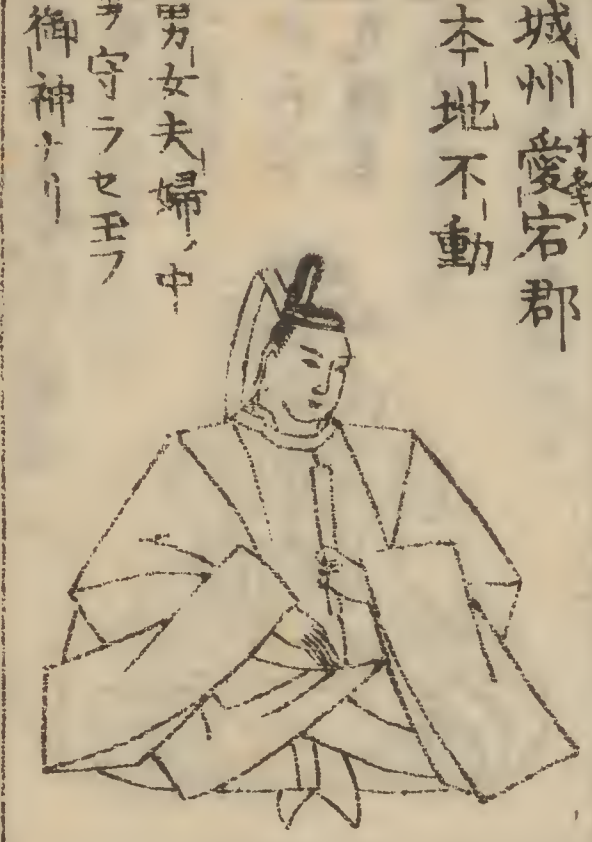 城州愛宕郡
本地不動
男女夫婦ノ中
ヲ守ラセ玉フ
御神ナリ